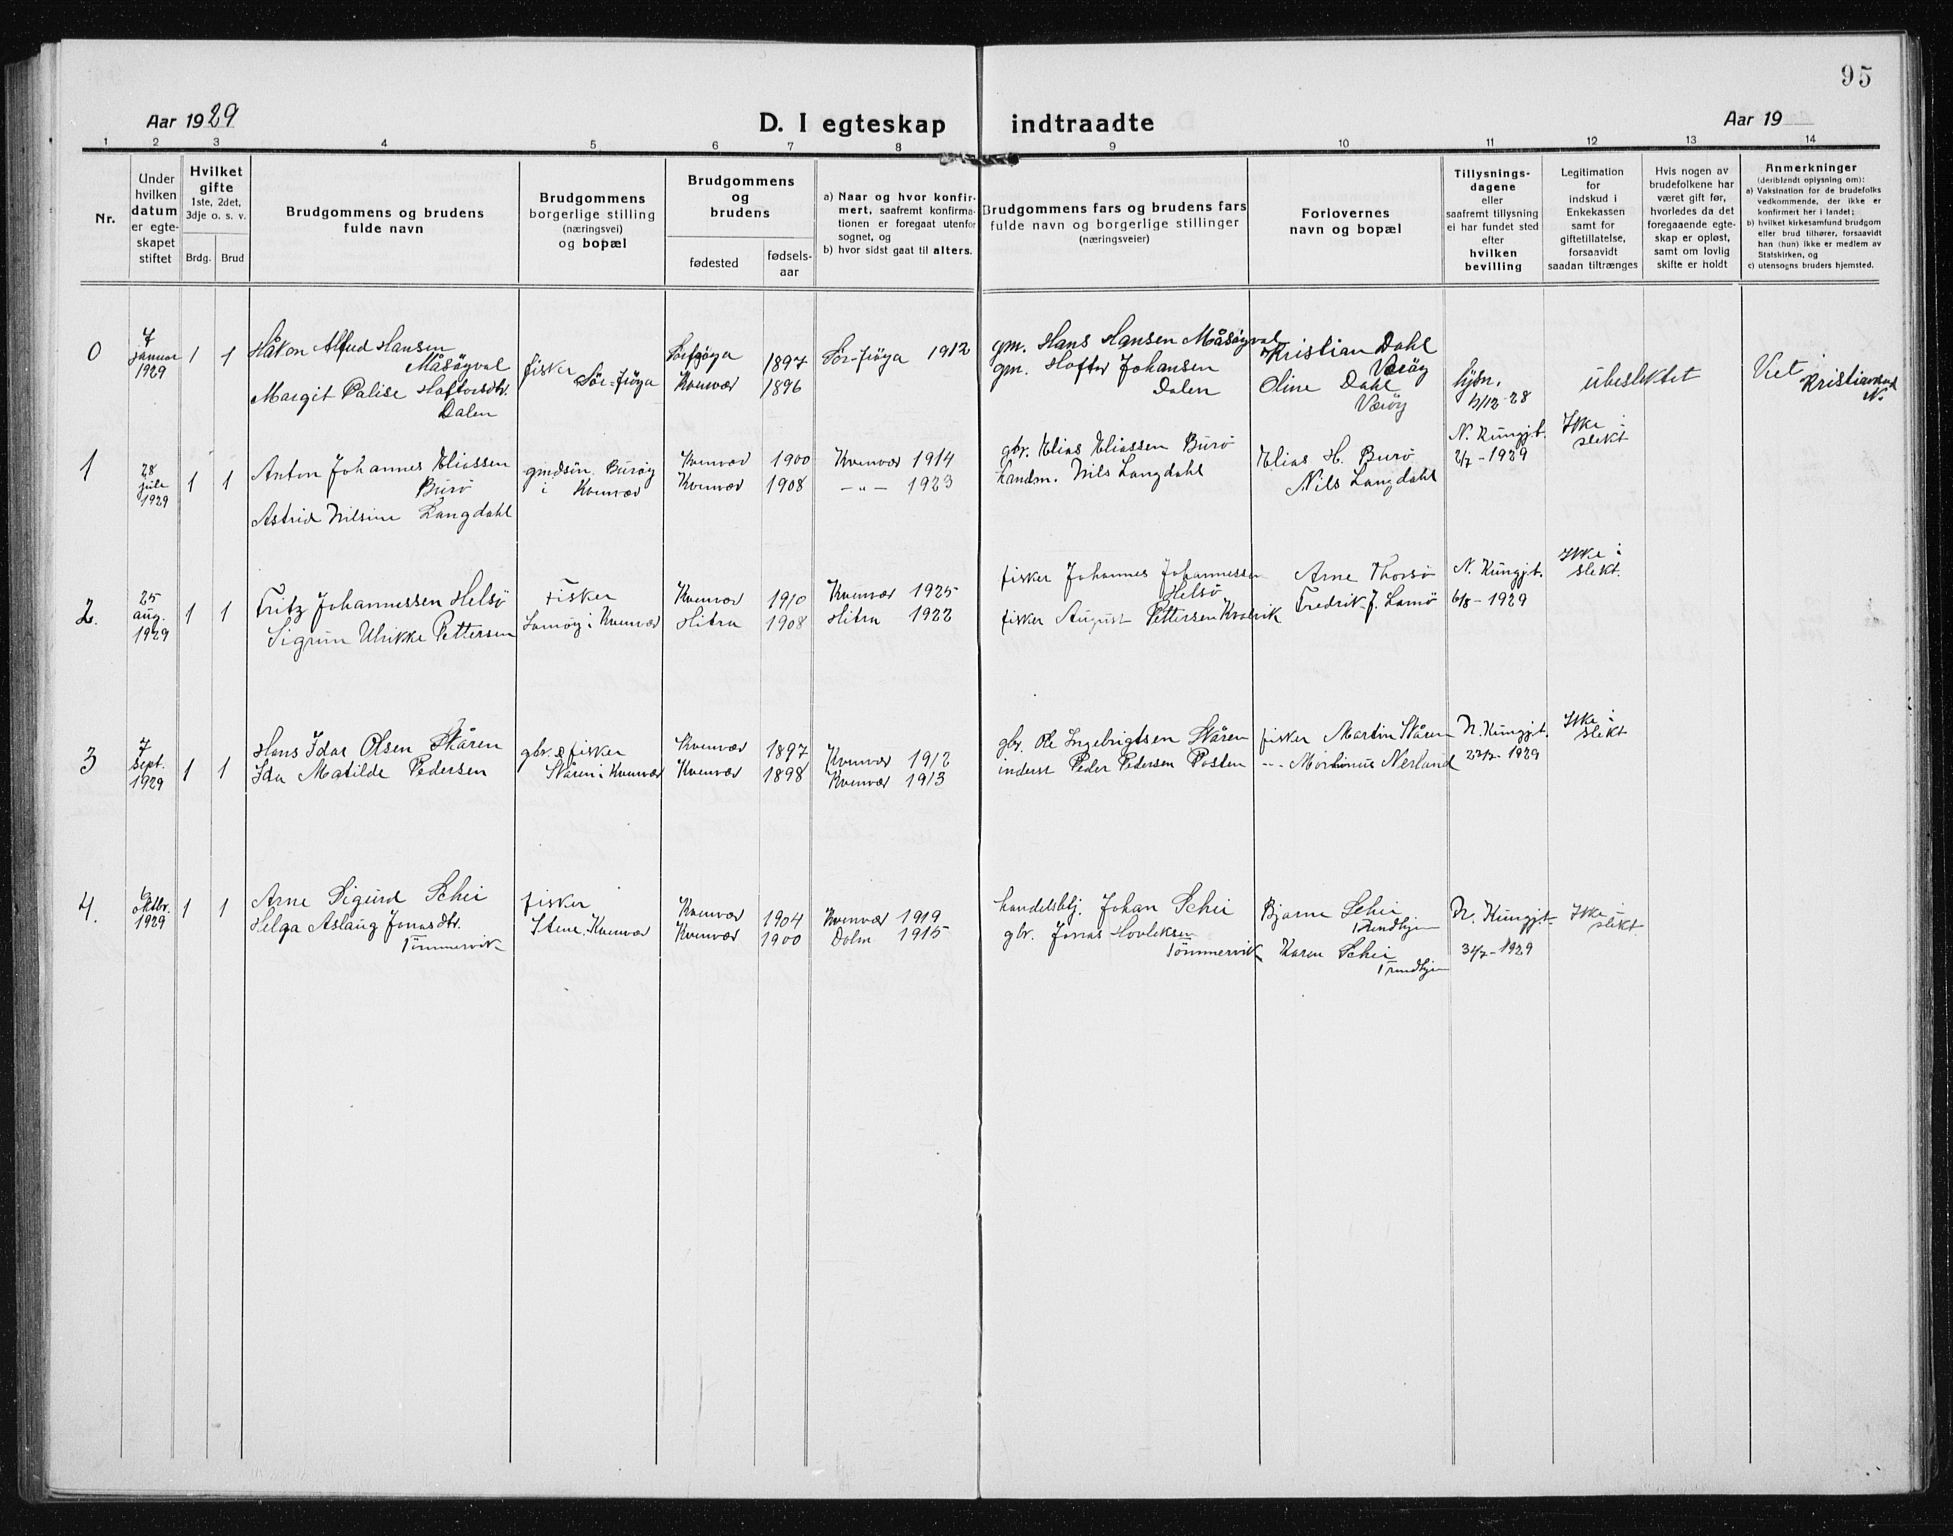 95
Aar 1929
D. I egteskap indtraadte
Aar 19
1 2 3 4 5 6 7 8 9 10 11 12 13 14
Nr.
Under
hvilken
datum
er egte-
skapet
stiftet
Hvilket
gifte
1ste, 2det,
3dje o. s. v.
Brdg. Brud
Brudgommens og brudens
fulde navn
Brudgommens
borgerlige stilling
(næringsvei)
og bopæl
Brudgommens
og
brudens
fødested
fødsels-
aar
a) Naar og hvor konfir-
mert, saafremt konfirma-
tionen er foregaat utenfor
sognet, og
b) hvor sidst gaat til alters.
Brudgommens fars og brudens fars
fulde navn og borgerlige stillinger
(næringsveier)
Forlovernes
navn og bopæl
Tillysnings-
dagene
eller
saafremt tillysning
ei har fundet sted
efter
hvilken
bevilling
Legitimation
for
indskud i
Enkekassen
samt for
giftetillatelse,
forsaavidt
saadan tiltrænges
Hvis nogen av
brudefolkene har
været gift før,
hvorledes da det
foregaaende egte-
skap er opløst,
samt om lovlig
skifte er holdt
Anmerkninger
(deriblandt oplysning om):
a) Vaksination for de brudefolks
vedkommende, der ikke er
konfirmert her i landet;
b) hvilket kirkesamfund brudgom
eller brud tilhører, forsaavidt
han (hun) ikke er medlem av
Statskirken, og
c) utensogns bruders hjemsted.
0
7
januar
1929
1 1
Håkon Alfred Hansen
Måsøyval
Margit Palise Haftorsdtr.
Dalen
fisker
Sør-Frøya
Sørfrøya 1897
Kvenvær 1896
Sør-Frøya 1912
gm. Hans Hansen Måsøyval
gm. Haftor Johansen
Dalen
Kristian Dahl
Værøy
Oline Dahl
Værøy
lysn.
/12-28
ubeslektet
Viet i
Kristiansund
N.
1
28
juli
1929
1 1
Anton Johannes Eliassen
Burø
Astrid Nilsine Langdahl
gmdsøn, Burøy
i Kvenvær
Kvenvær 1900
Kvenvær 1908
Kvenvær 1914
-"- 1923
gbr. Elias Eliassen Burø
handm. Nils Langdahl
Elias H. Burø
Nils Langdahl
N. Kungjt.
2/7-1929
Ikke i
slekt
2.
25
aug.
1929
1 1
Fritz Johannessen Helsø
Sigrun Ulrikke Pettersen
Fisker
Lamøy i Kvenvær
Kvenvær 1910
Hitra 1908
Kvenvær 1925
Hitra 1922
fisker Johannes Johannessen
Helsø
fisker August Pettersen Kvalvik
Arne Thorsø
Fredrik J. Lamø
N. Kungjt.
6/8-1929
Ikke i
slekt.
3
7
Sept.
1929
1 1
Hans Idar Olsen Skåren
Ida Matilde Pedersen
gbr. & fisker
Skåren i Kvenvær
Kvenvær 1897
Kvenvær 1898
Kvenvær 1912
Kvenvær 1913
gbr. Ole Ingebrigtsen Skåren
inderst Peder Pedersen Posten
fisker Martin Skåren
-"- Martinus Nesland
N. Kungjt.
22/7-1929
Ikke i
slekt
4.
6
oktbr.
1929
1 1
Arne Sigurd Schei
Helga Aslaug Jonasdtr.
Tømmervik
fisker
Stene, Kvenvær
Kvenvær 1904
Kvenvær 1900
Kvenvær 1919
Dolm 1915
handelsbtj. Johan Schei
gbr. Jonas Hovleksen
Tømmervik
Bjarne Schei
Trondhjem
Karen Schei
Trondhjem
N. Kungjt.
31/7-1929
Ikke i
slekt